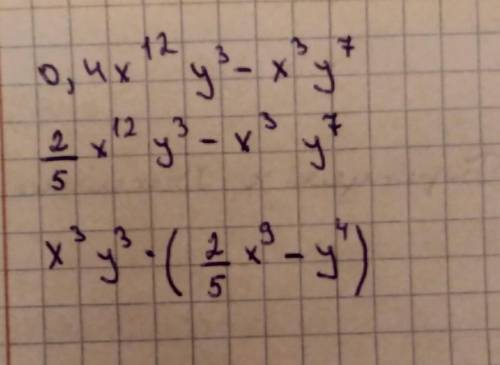 0,4x¹² y³ - x³ y⁷
2/5 x¹² y³ - x³ y⁷
x³ y³ · (2/5 x⁹ - y⁴)